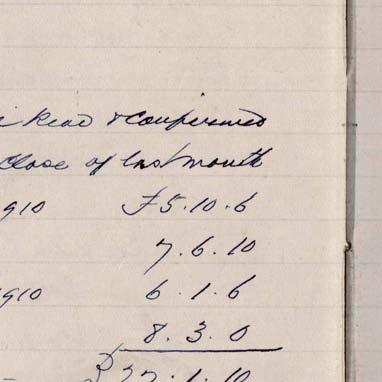 Read & Confirmed
Close of last month
910 £5.10.6
7.6.10
910 6.1.6
8.3.0
27.1.10